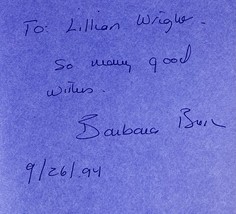 To: Lillian Wright.
So many good
wishes.
Barbara
9/26/94